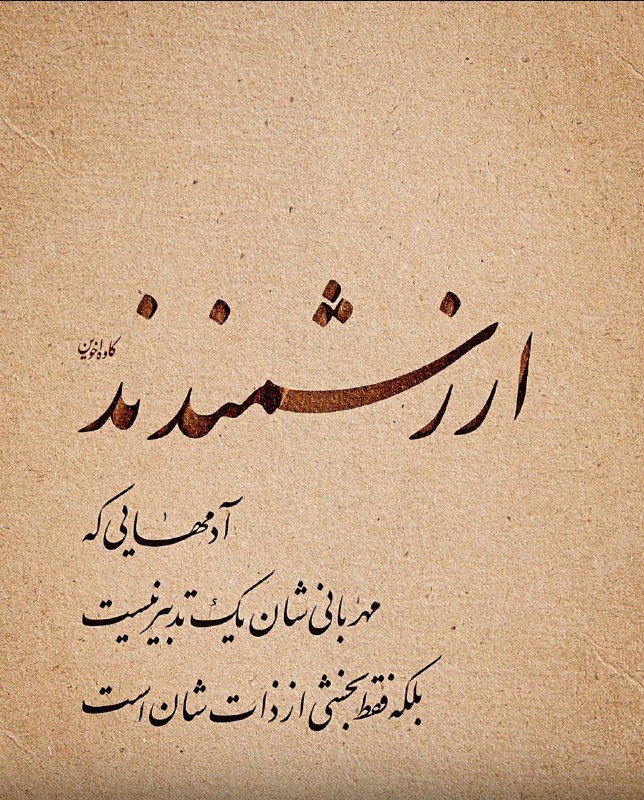 ارزشمندند
کاوه اخوین
آدمهایی که
مهربانی شان یک تدبیر نیست
بلکه فقط بخشی از ذات شان است